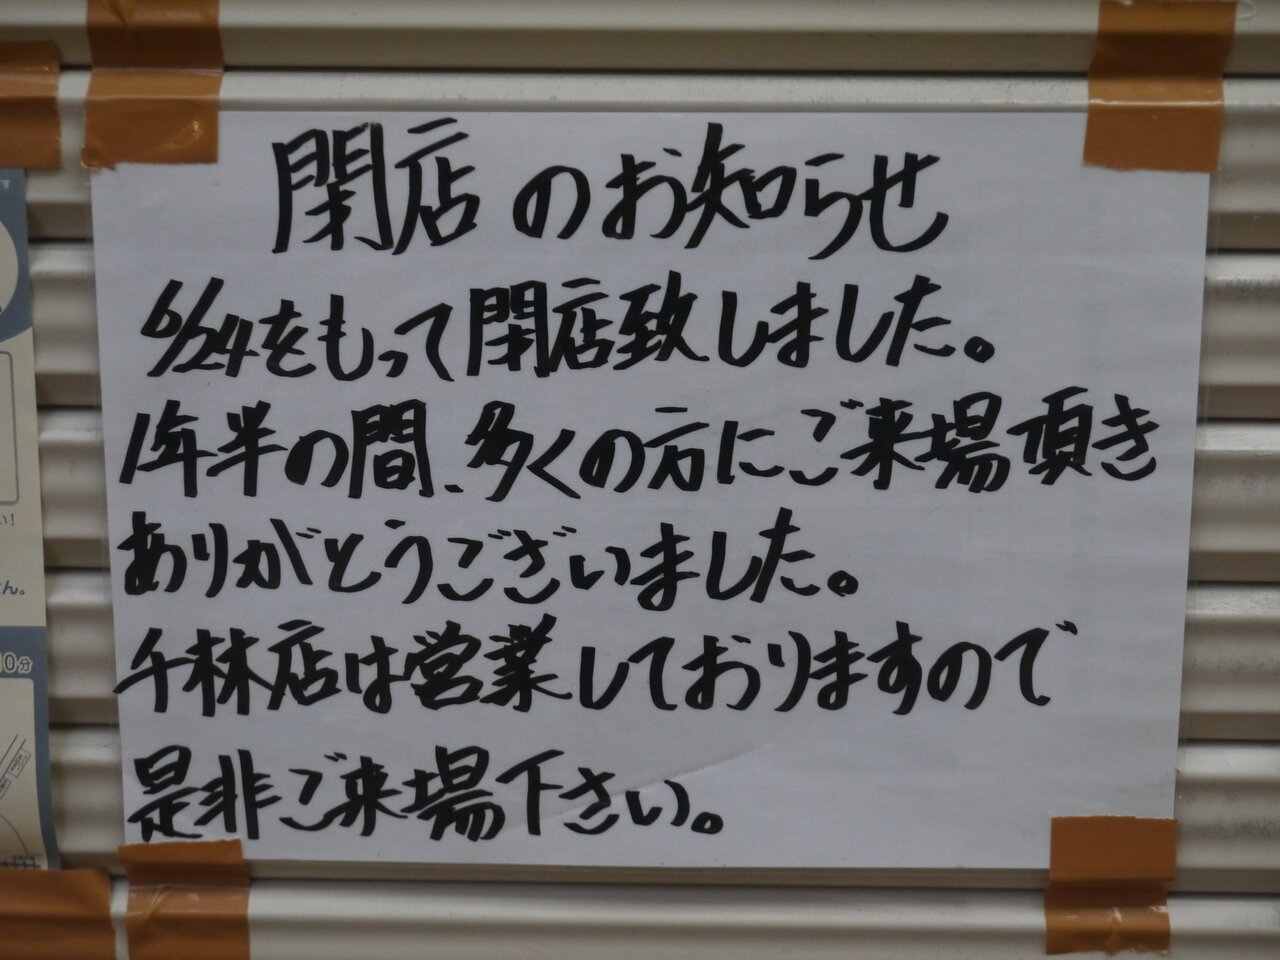 閉店のお知らせ
6/24をもって閉店致しました。
1年半の間、多くの方にご来場頂き
ありがとうございました。
千林店は営業しておりますので
是非ご来場下さい。
い!
ん。
10分